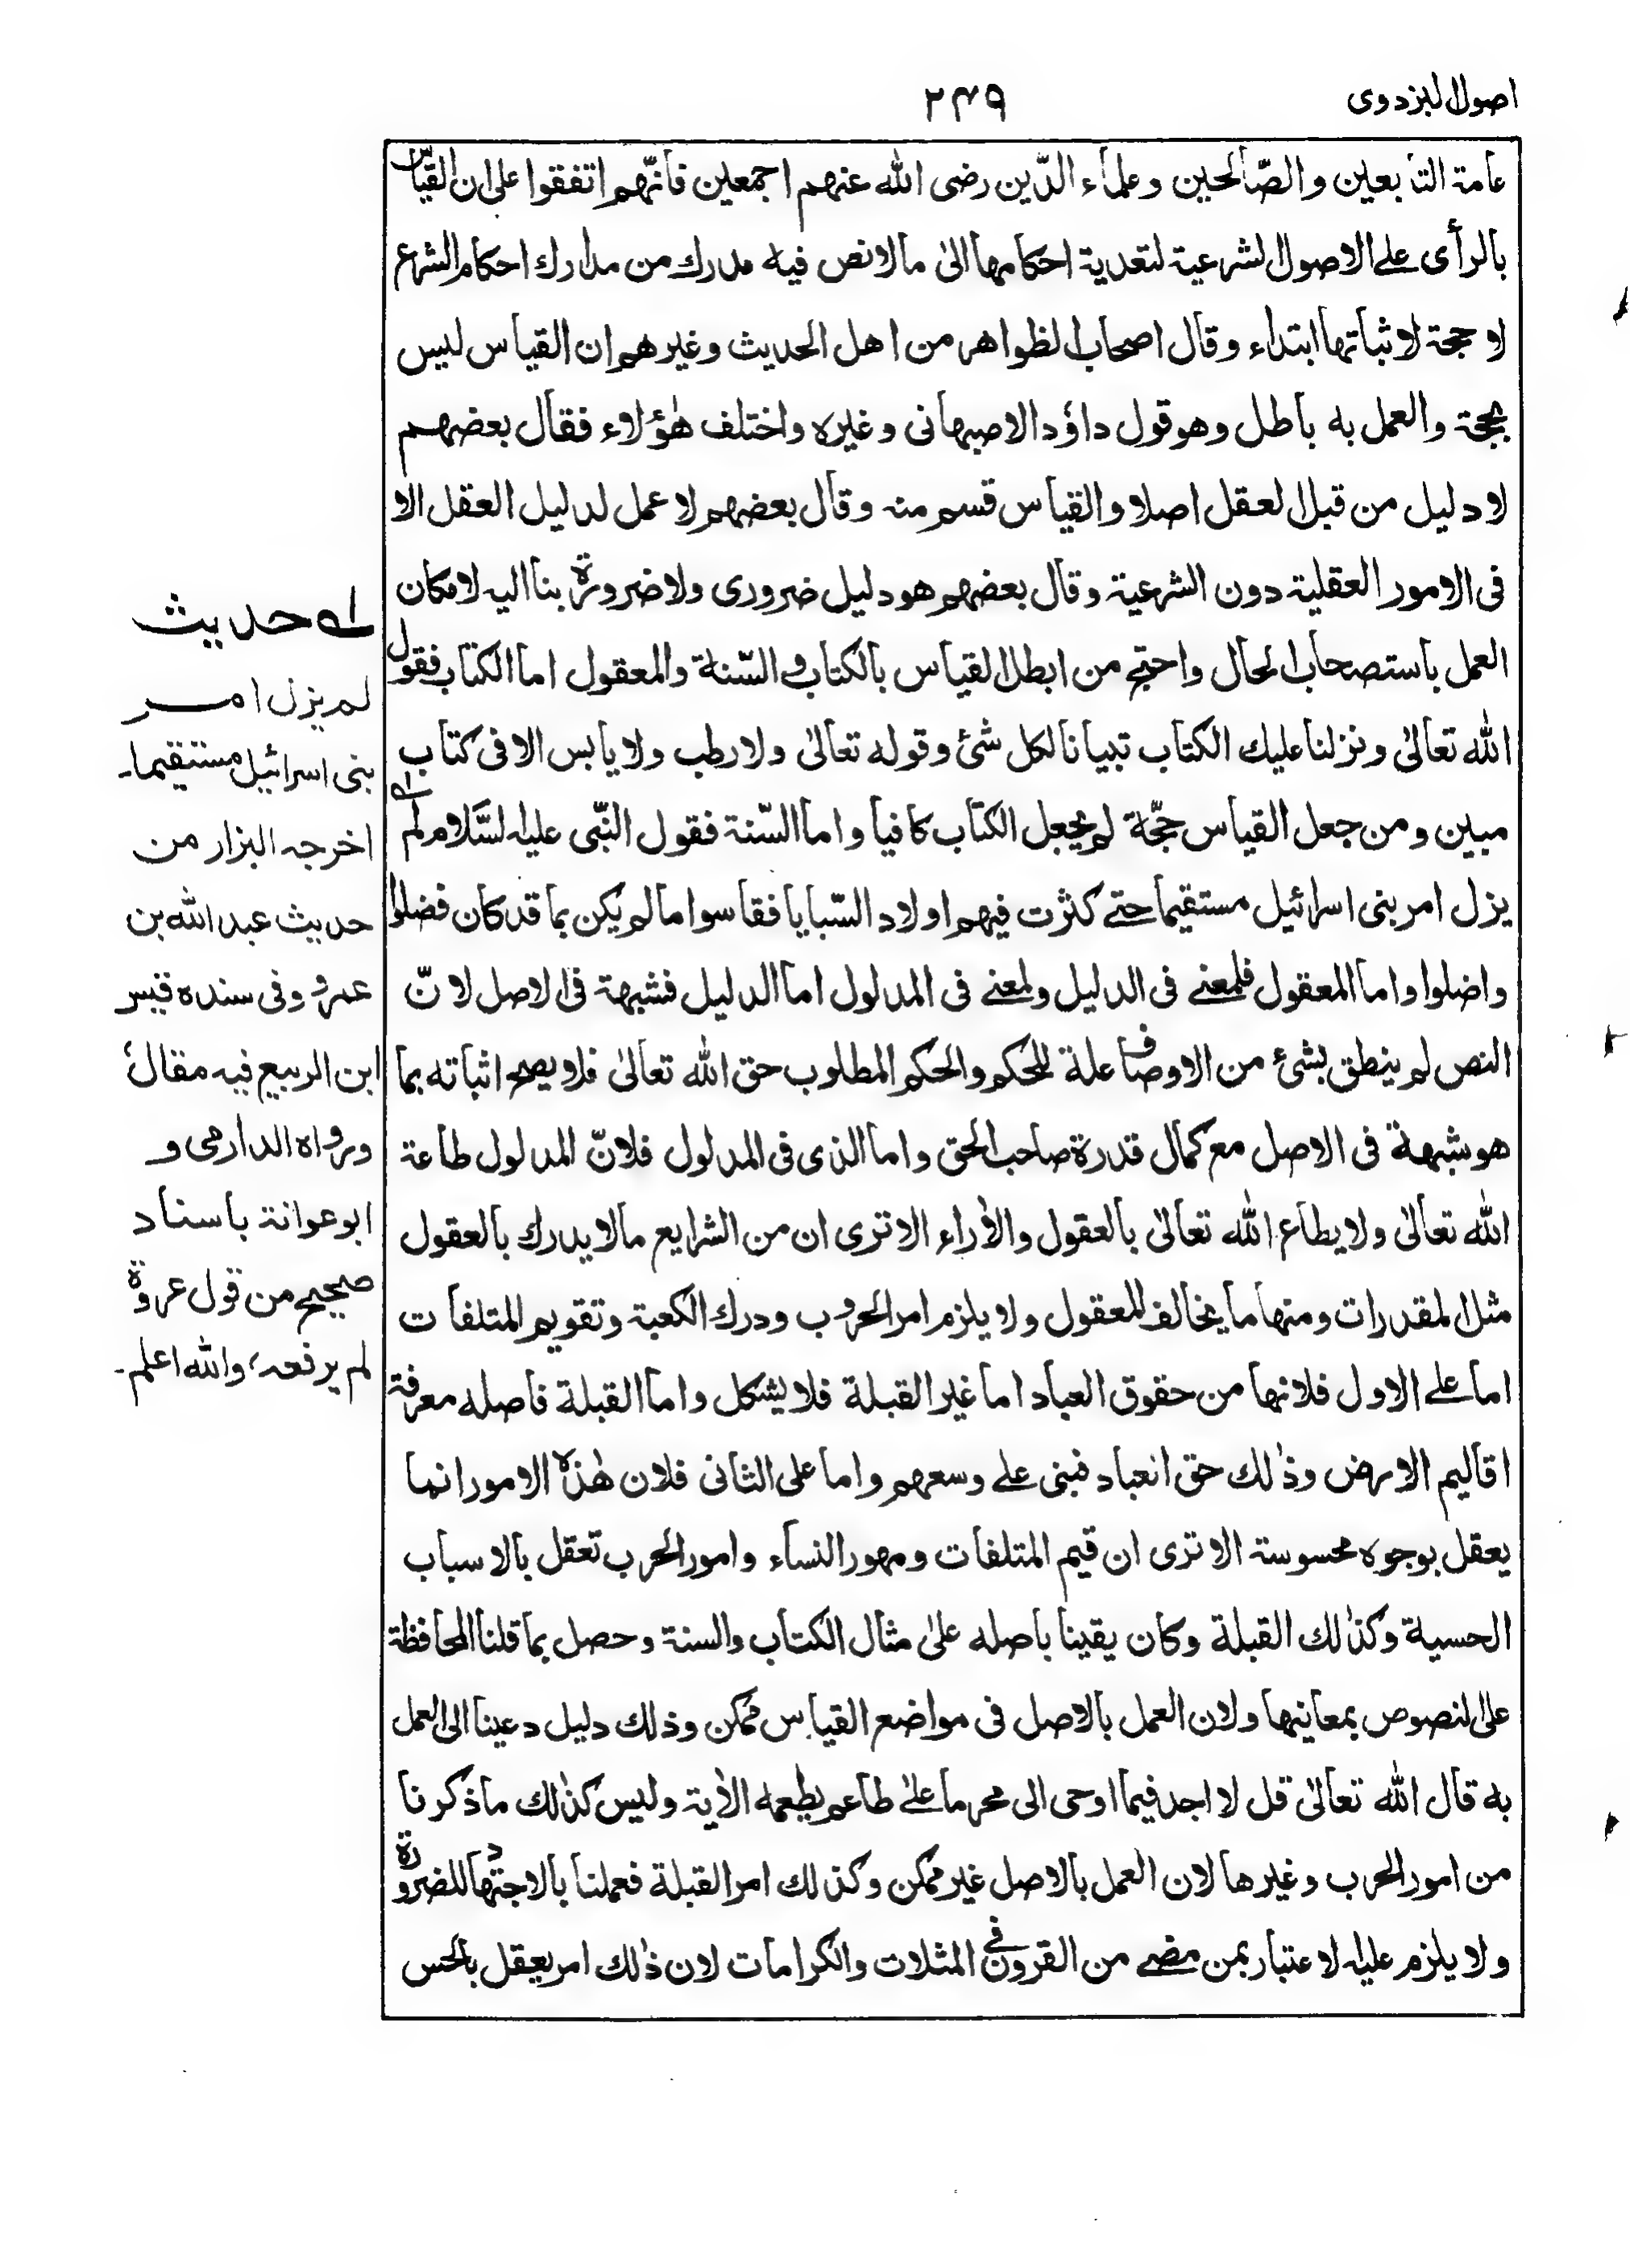 اصول البزدوی
۲۴۹
عامة التابعين والصّالحين وعلماء الدّين رضى الله عنهم اجمعين فانّهم اتفقوا على ان القياس
بالرأى على الاصول الشرعية لتعدية احكامها الىٰ مالا نص فيه مدرك من مدارك احكام الشرع
لا حجة لاثباتها ابتداء وقال اصحاب الظواهر من اهل الحديث وغيرهم ان القياس ليس
بحجة والعمل به باطل وهو قول داؤد الاصبهانى وغيره واختلف هٰؤلاء فقال بعضهم
لا دليل من قبل العقل اصلا والقياس قسم منه وقال بعضهم لا عمل لدليل العقل الا
فى الامور العقلية دون الشرعية وقال بعضهم هو دليل ضرورى ولا ضرورة بنا اليه لامكان
العمل باستصحاب الحال واحتج من ابطل القياس بالكتاب والسّنة والمعقول اما الكتاب فقول
الله تعالىٰ ونزلنا عليك الكتاب تبيانا لكل شئ وقوله تعالىٰ ولا رطب ولا يابس الا فى كتاب
مبين ومن جعل القياس حجّة لم يجعل الكتاب كافيا واما السّنة فقول النّبى عليه السّلام لم
يزل امر بنى اسرائيل مستقيما حتى كثرت فيهم اولاد السّبايا فقاسوا مالم يكن بما قد كان فضلوا
واضلوا واما المعقول فلمعنى فى الدليل ولمعنى فى المدلول اما الدليل فشبهة فى الاصل لانّ
النص لم ينطق بشئ من الاوصاف علة للحكم والحكم المطلوب حق الله تعالىٰ فلا يصح اثباته بما
هو شبهة فى الاصل مع كمال قدرة صاحب الحق واما الذى فى المدلول فلانّ المدلول طاعة
الله تعالىٰ ولا يطاع الله تعالىٰ بالعقول والاٰراء الا ترى ان من الشرايع مالا يدرك بالعقول
مثل المقدرات ومنها ما يخالف المعقول ولا يلزم امر الحروب ودرك الكعبة وتقويم المتلفات
اما على الاول فلانها من حقوق العباد اما غير القبلة فلا يشكل واما القبلة فاصله معرفة
اقاليم الارض وذٰلك حق العباد فبنى على وسعهم واما على الثانى فلان هٰذه الامور انما
يعقل بوجوه محسوسة الا ترى ان قيم المتلفات ومهور النساء وامور الحرب تعقل بالاسباب
الحسية وكذٰلك القبلة وكان يقينا باصله علىٰ مثال الكتاب والسنة وحصل بما قلنا المحافظة
على النصوص بمعانيها ولان العمل بالاصل فى مواضع القياس ممكن وذلك دليل دعينا الى العمل
به قال الله تعالىٰ قل لا اجد فيما اوحى الى محرما علىٰ طاعم يطعمه الاٰية وليس كذٰلك ما ذكرنا
من امور الحرب وغيرها لان العمل بالاصل غير ممكن وكذلك امر القبلة فعملنا بالاجتهاد للضرورة
ولا يلزم عليه لاعتبار بمن مضى من القرون فى المثلات والكرامات لان ذٰلك امر يعقل بالحس
لہ حديث
لم يزل امر
بنى اسرائيل مستقيما۔
اخرجه البزار من
حديث عبد الله بن
عمرو وفى سنده قيس
ابن الربيع فيه مقال
ورواه الدارمى و
ابو عوانة باسناد
صحيح من قول عروة
لم يرفعه، والله اعلم۔